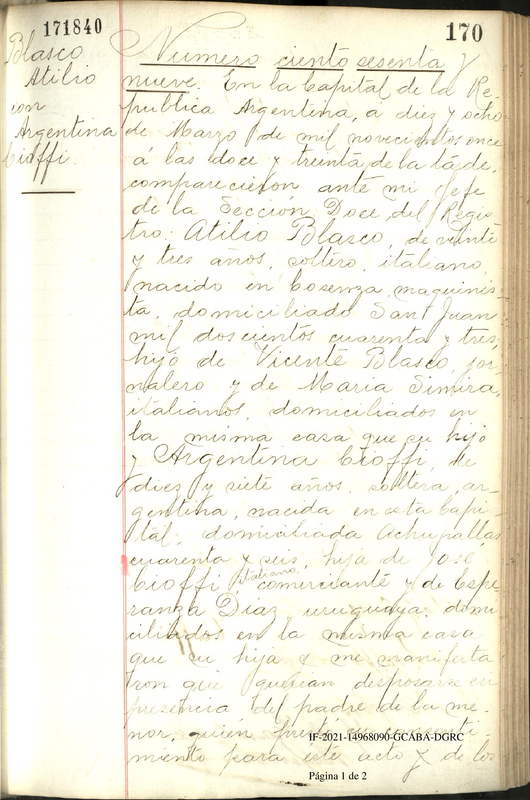 171840
170
Blasco
Atilio
con
Argentina
Cioffi.
Número ciento sesenta y
nueve. En la Capital de la Re-
pública Argentina, a diez y ocho
de Marzo de mil novecientos once
á las doce y treinta de la tarde,
comparecieron ante mi Jefe
de la Sección Doce del Regis
tro: Atilio Blasco, de veinte
y tres años, soltero, italiano,
nacido en Cosenza, maquinis-
ta, domiciliado San Juan
mil doscientos cuarenta y tres,
hijo de Vicente Blasco, jor-
nalero y de Maria Simira,
italianos, domiciliados en
la misma casa que su hijo
y Argentina Cioffi, de
diez y siete años, soltera, ar-
gentina, nacida en esta Capi-
tal, domiciliada Achupallas
cuarenta y seis, hija de José
Cioffi, italiano, comerciante y de Espe-
ranza Diaz, uruguaya, domi
ciliados en la misma casa
que su hija y me manifesta
ron que querian desposarse en
presencia del padre de la me-
nor, quién prestó su consenti-
miento para este acto y de los
IF-2021-14968090-GCABA-DGRC
Página 1 de 2